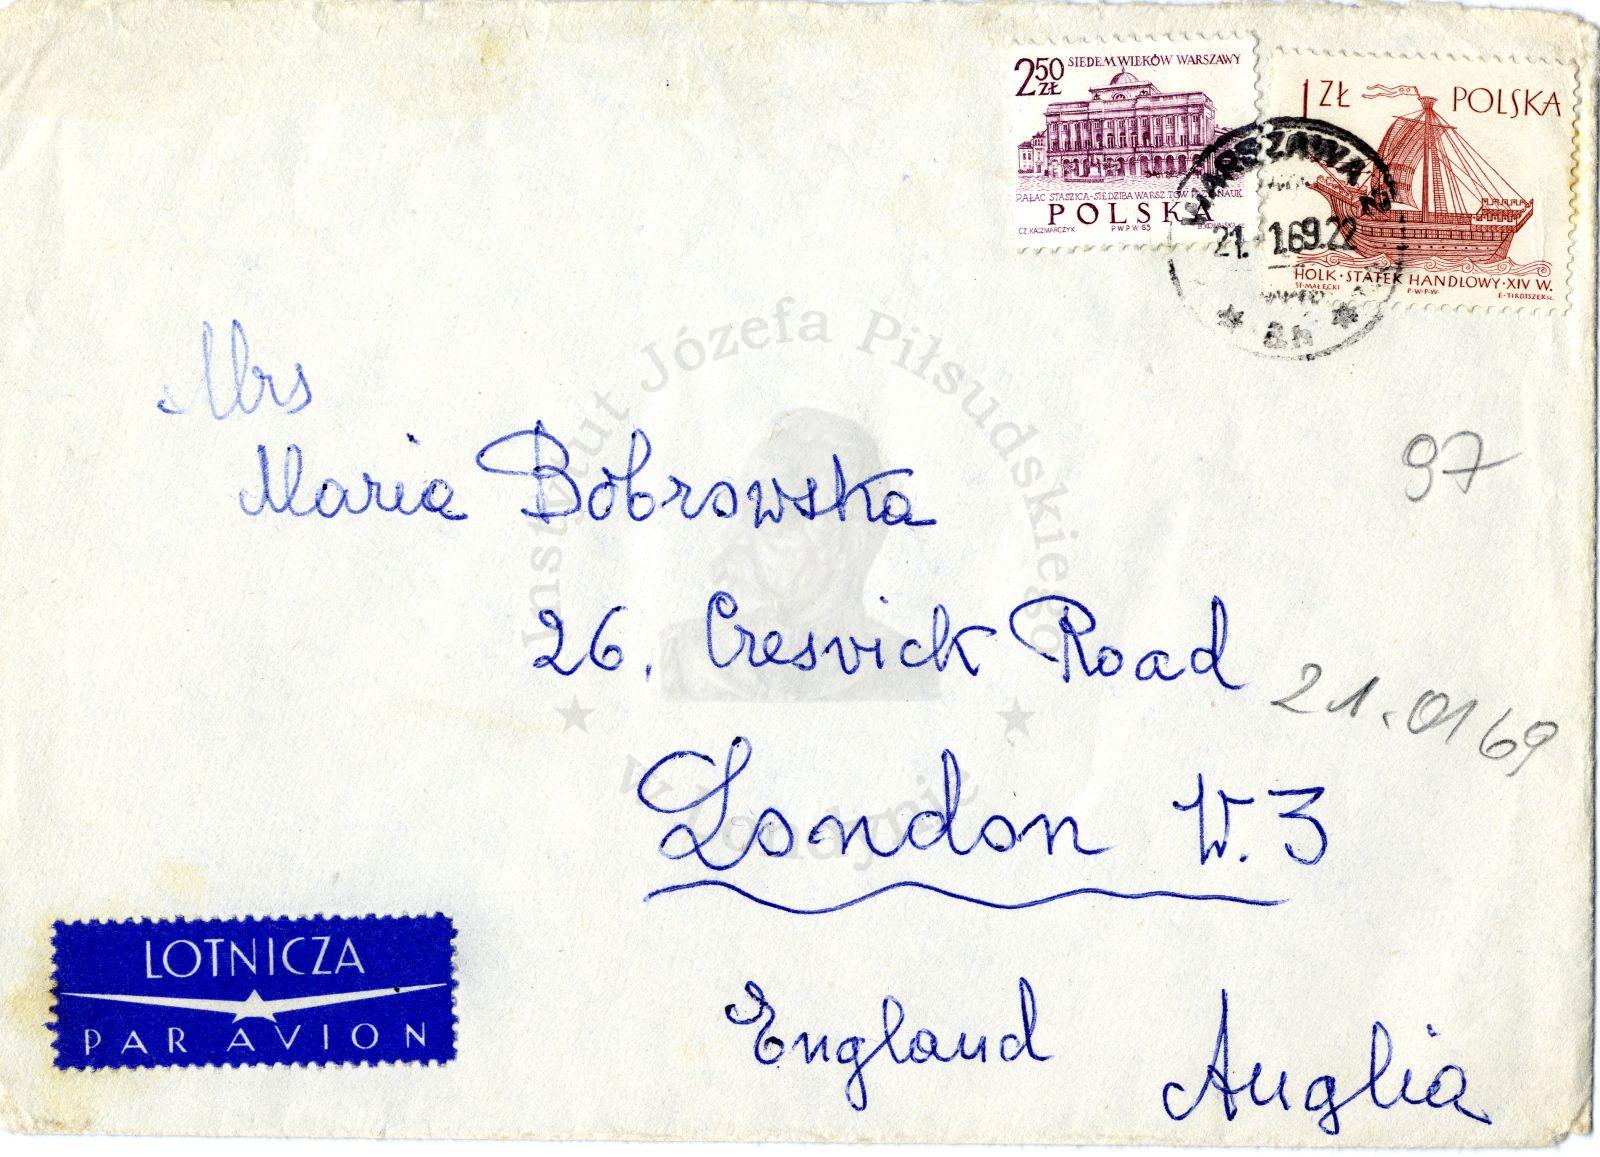 250 ZŁ
SIEDEM WIEKÓW WARSZAWY
PAŁAC STASZICA-SIEDZIBA WARSZ. TOW. NAUK
POLSKA
CZ. KACZMARCZYK PWPW 65
1 ZŁ POLSKA
HOLK · STATEK HANDLOWY · XIV W.
ST. MAŁECKI P·W·P·W·
WARSZAWA
21. -1.69.22
Mrs
Maria Bobrowska
97
26, Cresvick Road
21.01 69
London W.3
England
Anglia
LOTNICZA
PAR AVION
Instytut Józefa Piłsudskiego
w Londynie